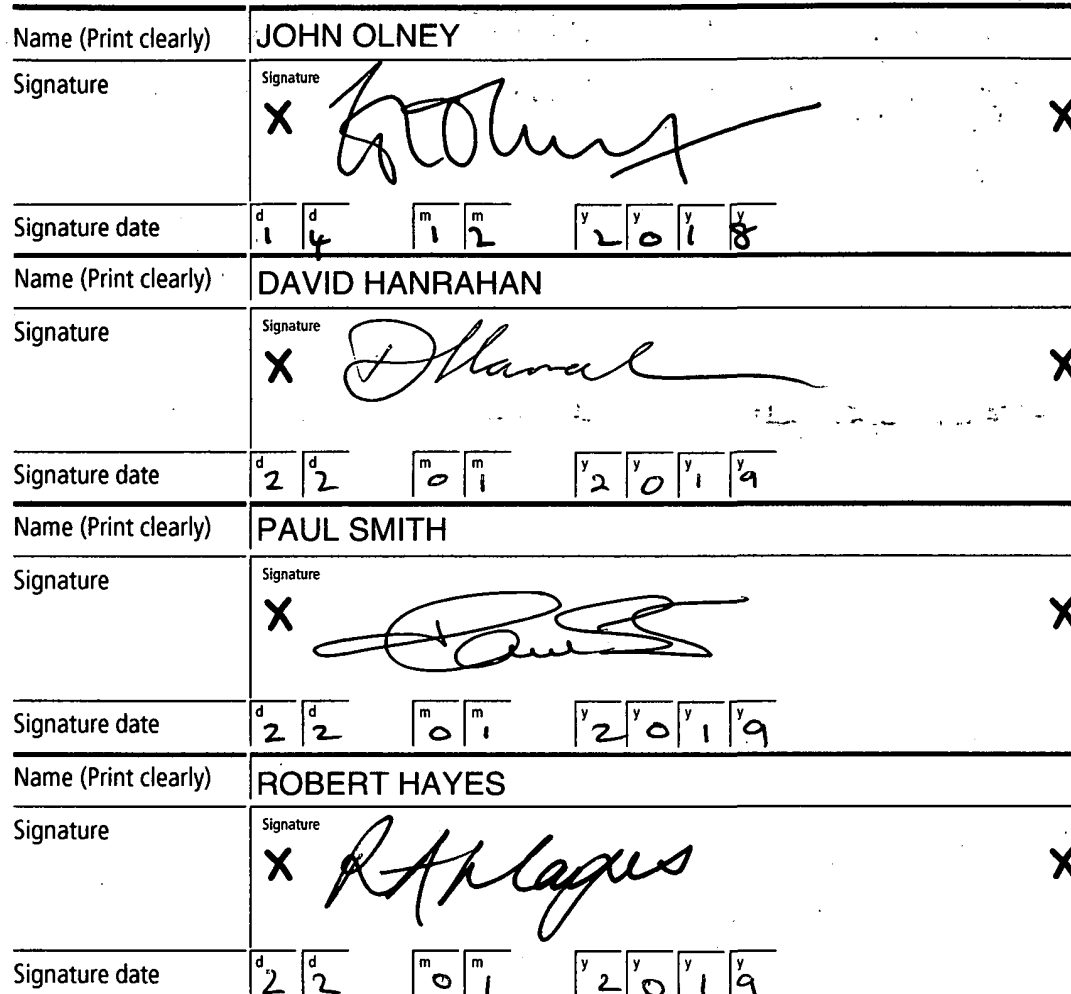 Name (Print clearly) JOHN OLNEY
Signature Signature
X X
Signature date d 1 d 4 m 1 m 2 y 2 y 0 y 1 y 8
Name (Print clearly) DAVID HANRAHAN
Signature Signature
X X
Signature date d 2 d 2 m 0 m 1 y 2 y 0 y 1 y 9
Name (Print clearly) PAUL SMITH
Signature Signature
X X
Signature date d 2 d 2 m 0 m 1 y 2 y 0 y 1 y 9
Name (Print clearly) ROBERT HAYES
Signature Signature
X X
Signature date d 2 d 2 m 0 m 1 y 2 y 0 y 1 y 9